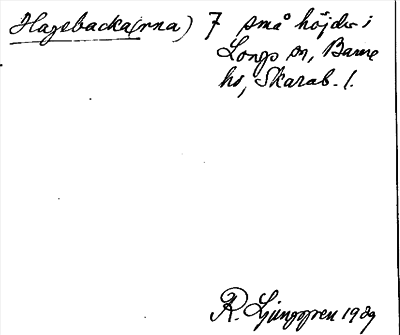 Hagsbacka(rna) 7 små höjder i
Longs sn, Barne
hd, Skarab. l.
R. Ljunggren 1939